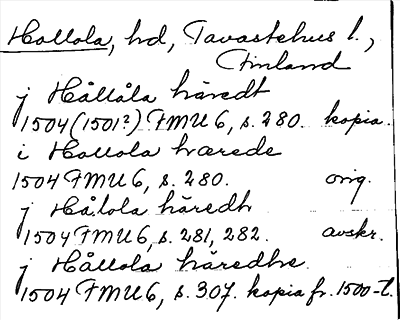 Hollola, hd, Tavastehus l.,
Finland
j Hållåla häredt
1504 (1501?) FMU 6, s. 280. kopia.
i Hollola hærede
1504 FMU 6, s. 280. orig.
j Hålola häredh
1504 FMU 6, s. 281, 282. avskr.
j Hållola häredhe
1504 FMU 6, s. 307. kopia fr. 1500-t.